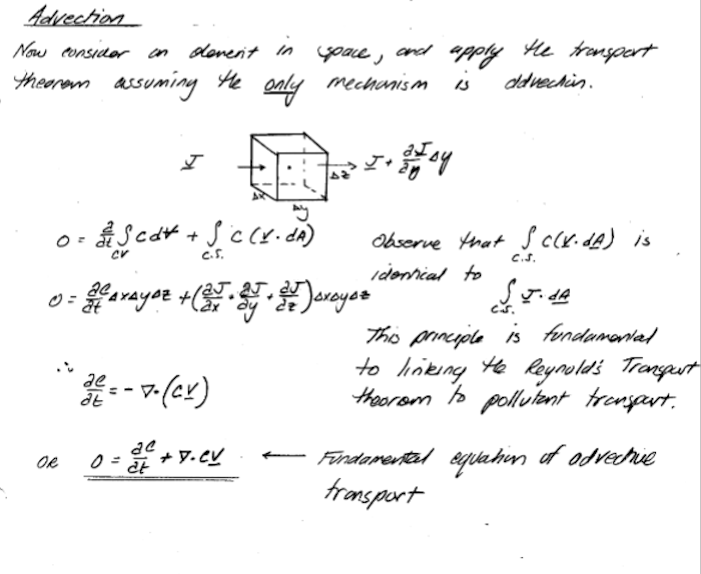 Advection
Now consider an element in space, and apply the transport
theorem assuming the only mechanism is advection.
J
J + ∂J/∂y Δy
Δz
Δx
Δy
0 = ∂/∂t ∫ c d∀ + ∫ c (V·dA)
CV C.S.
Observe that ∫ c(V·dA) is
C.S.
identical to
∫ J·dA
C.S.
0 = ∂c/∂t ΔxΔyΔz + (∂J/∂x + ∂J/∂y + ∂J/∂z) ΔxΔyΔz
This principle is fundamental
to linking the Reynold's Transport
theorem to pollutant transport.
∴
∂c/∂t = - ∇·(cV)
OR 0 = ∂c/∂t + ∇·cV ← Fundamental equation of advective
transport